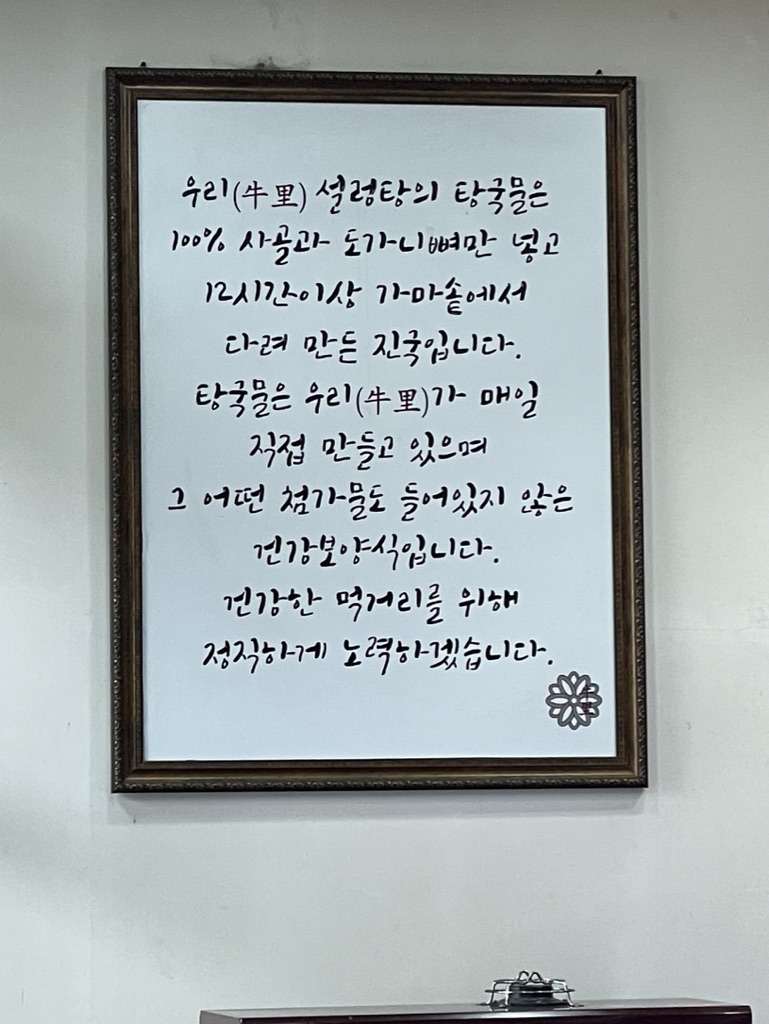 우리(牛里) 설렁탕의 탕국물은
100% 사골과 도가니뼈만 넣고
12시간이상 가마솥에서
다려 만든 진국입니다.
탕국물은 우리(牛里)가 매일
직접 만들고 있으며
그 어떤 첨가물도 들어있지 않은
건강보양식입니다.
건강한 먹거리를 위해
정직하게 노력하겠습니다.
牛里